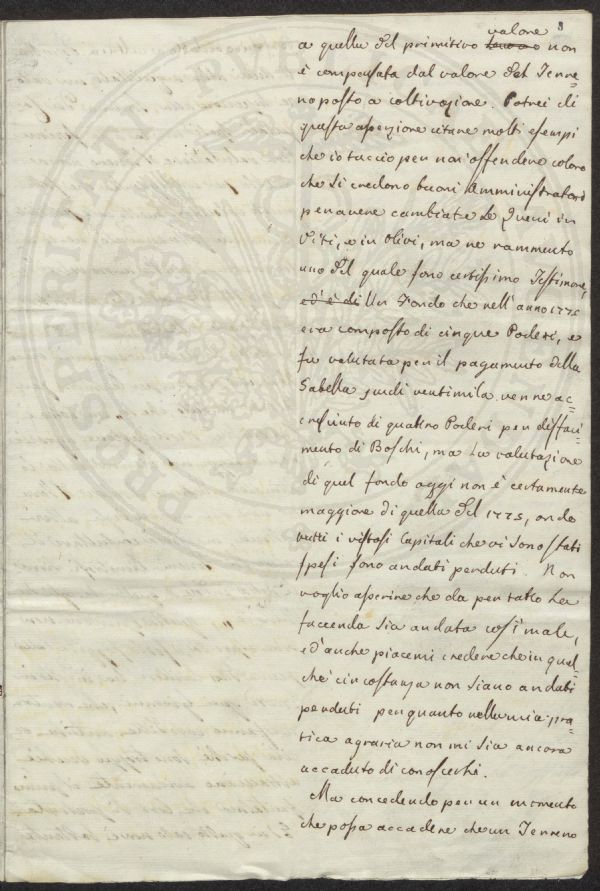 8
valore
a quella del primitivo lavoro non
è compensata dal valore del Terre=
no posto a coltivazione. Potrei di
questa asserzione citare molti esempi
che io taccio per non offendere coloro
che si credono buoni Amministratori
per avere cambiate le Querci in
Viti, e in Olivi, ma ne rammento
uno del quale sono certissimo Testimone,
ed è di Un Fondo che nell'anno 1775
era composto di cinque Poderi, e
fu valutata per il pagamento della
Gabella scudi ventimila venne ac=
cresciuto di quattro Poderi per disfaci=
mento di Boschi, ma la valutazione
di quel fondo oggi non è certamente
maggiore di quella del 1775, onde
tutti i vistosi Capitali che vi sono stati
spesi sono andati perduti. Non
voglio asserire che da per tutto la
faccenda sia andata così male,
ed anche piacemi credere che in qual=
che circostanza non siano andati
perduti per quanto nella mia pra=
tica agraria non mi sia ancora
accaduto di conoscerli.
Ma concedendo per un momento
che possa accadere che un Terreno